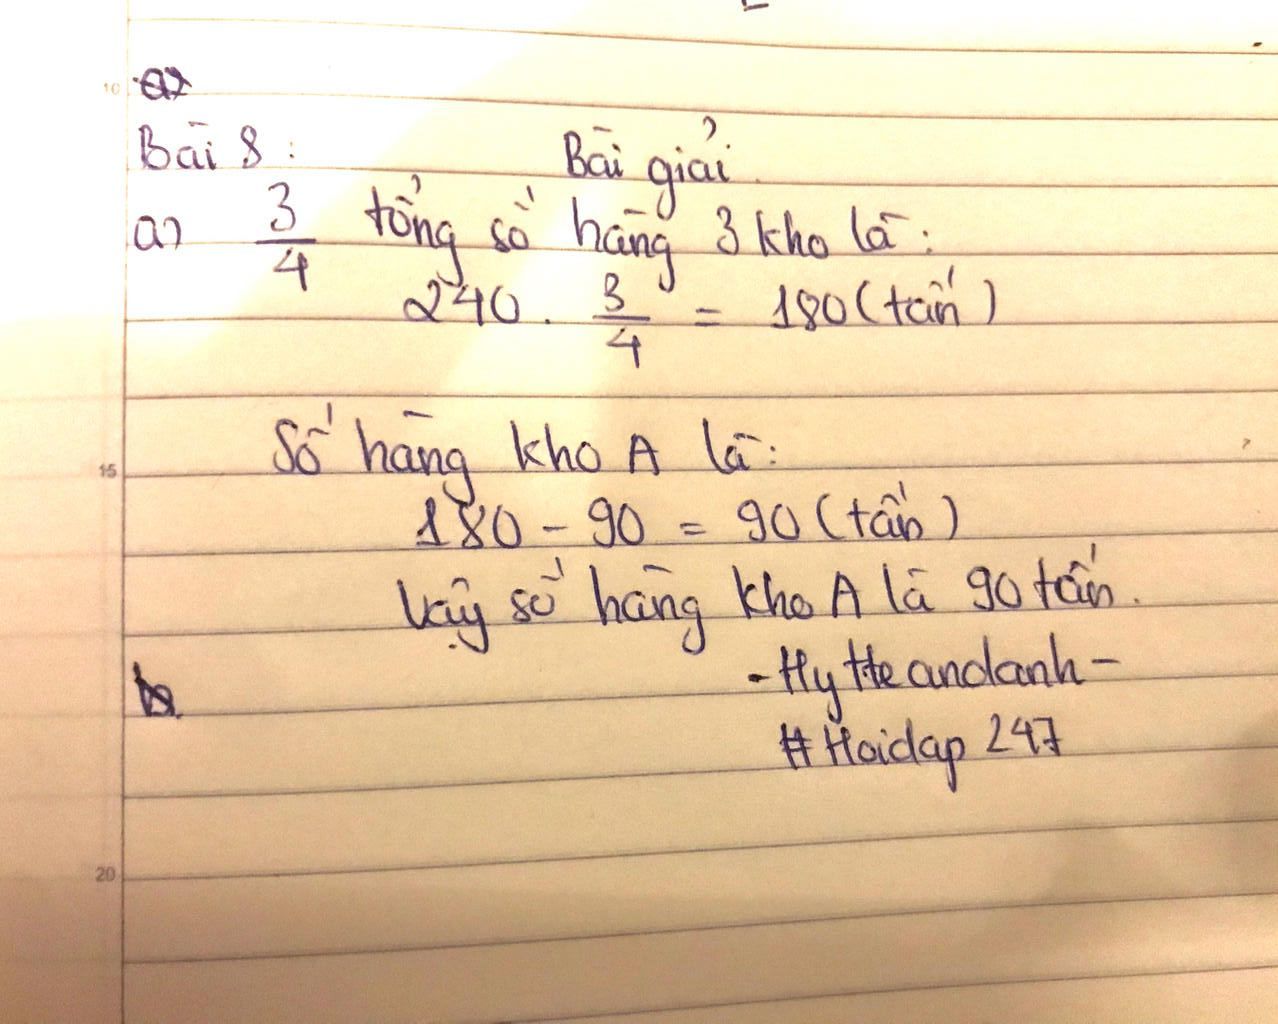 10
Bài 8 :
Bài giải
a) 3/4 tổng số hàng 3 kho là :
240 . 3/4 = 180 (tấn)
Số hàng kho A là :
15
180 - 90 = 90 (tấn)
Vậy số hàng kho A là 90 tấn.
- Hy the andanh -
# Hoidap 247
20